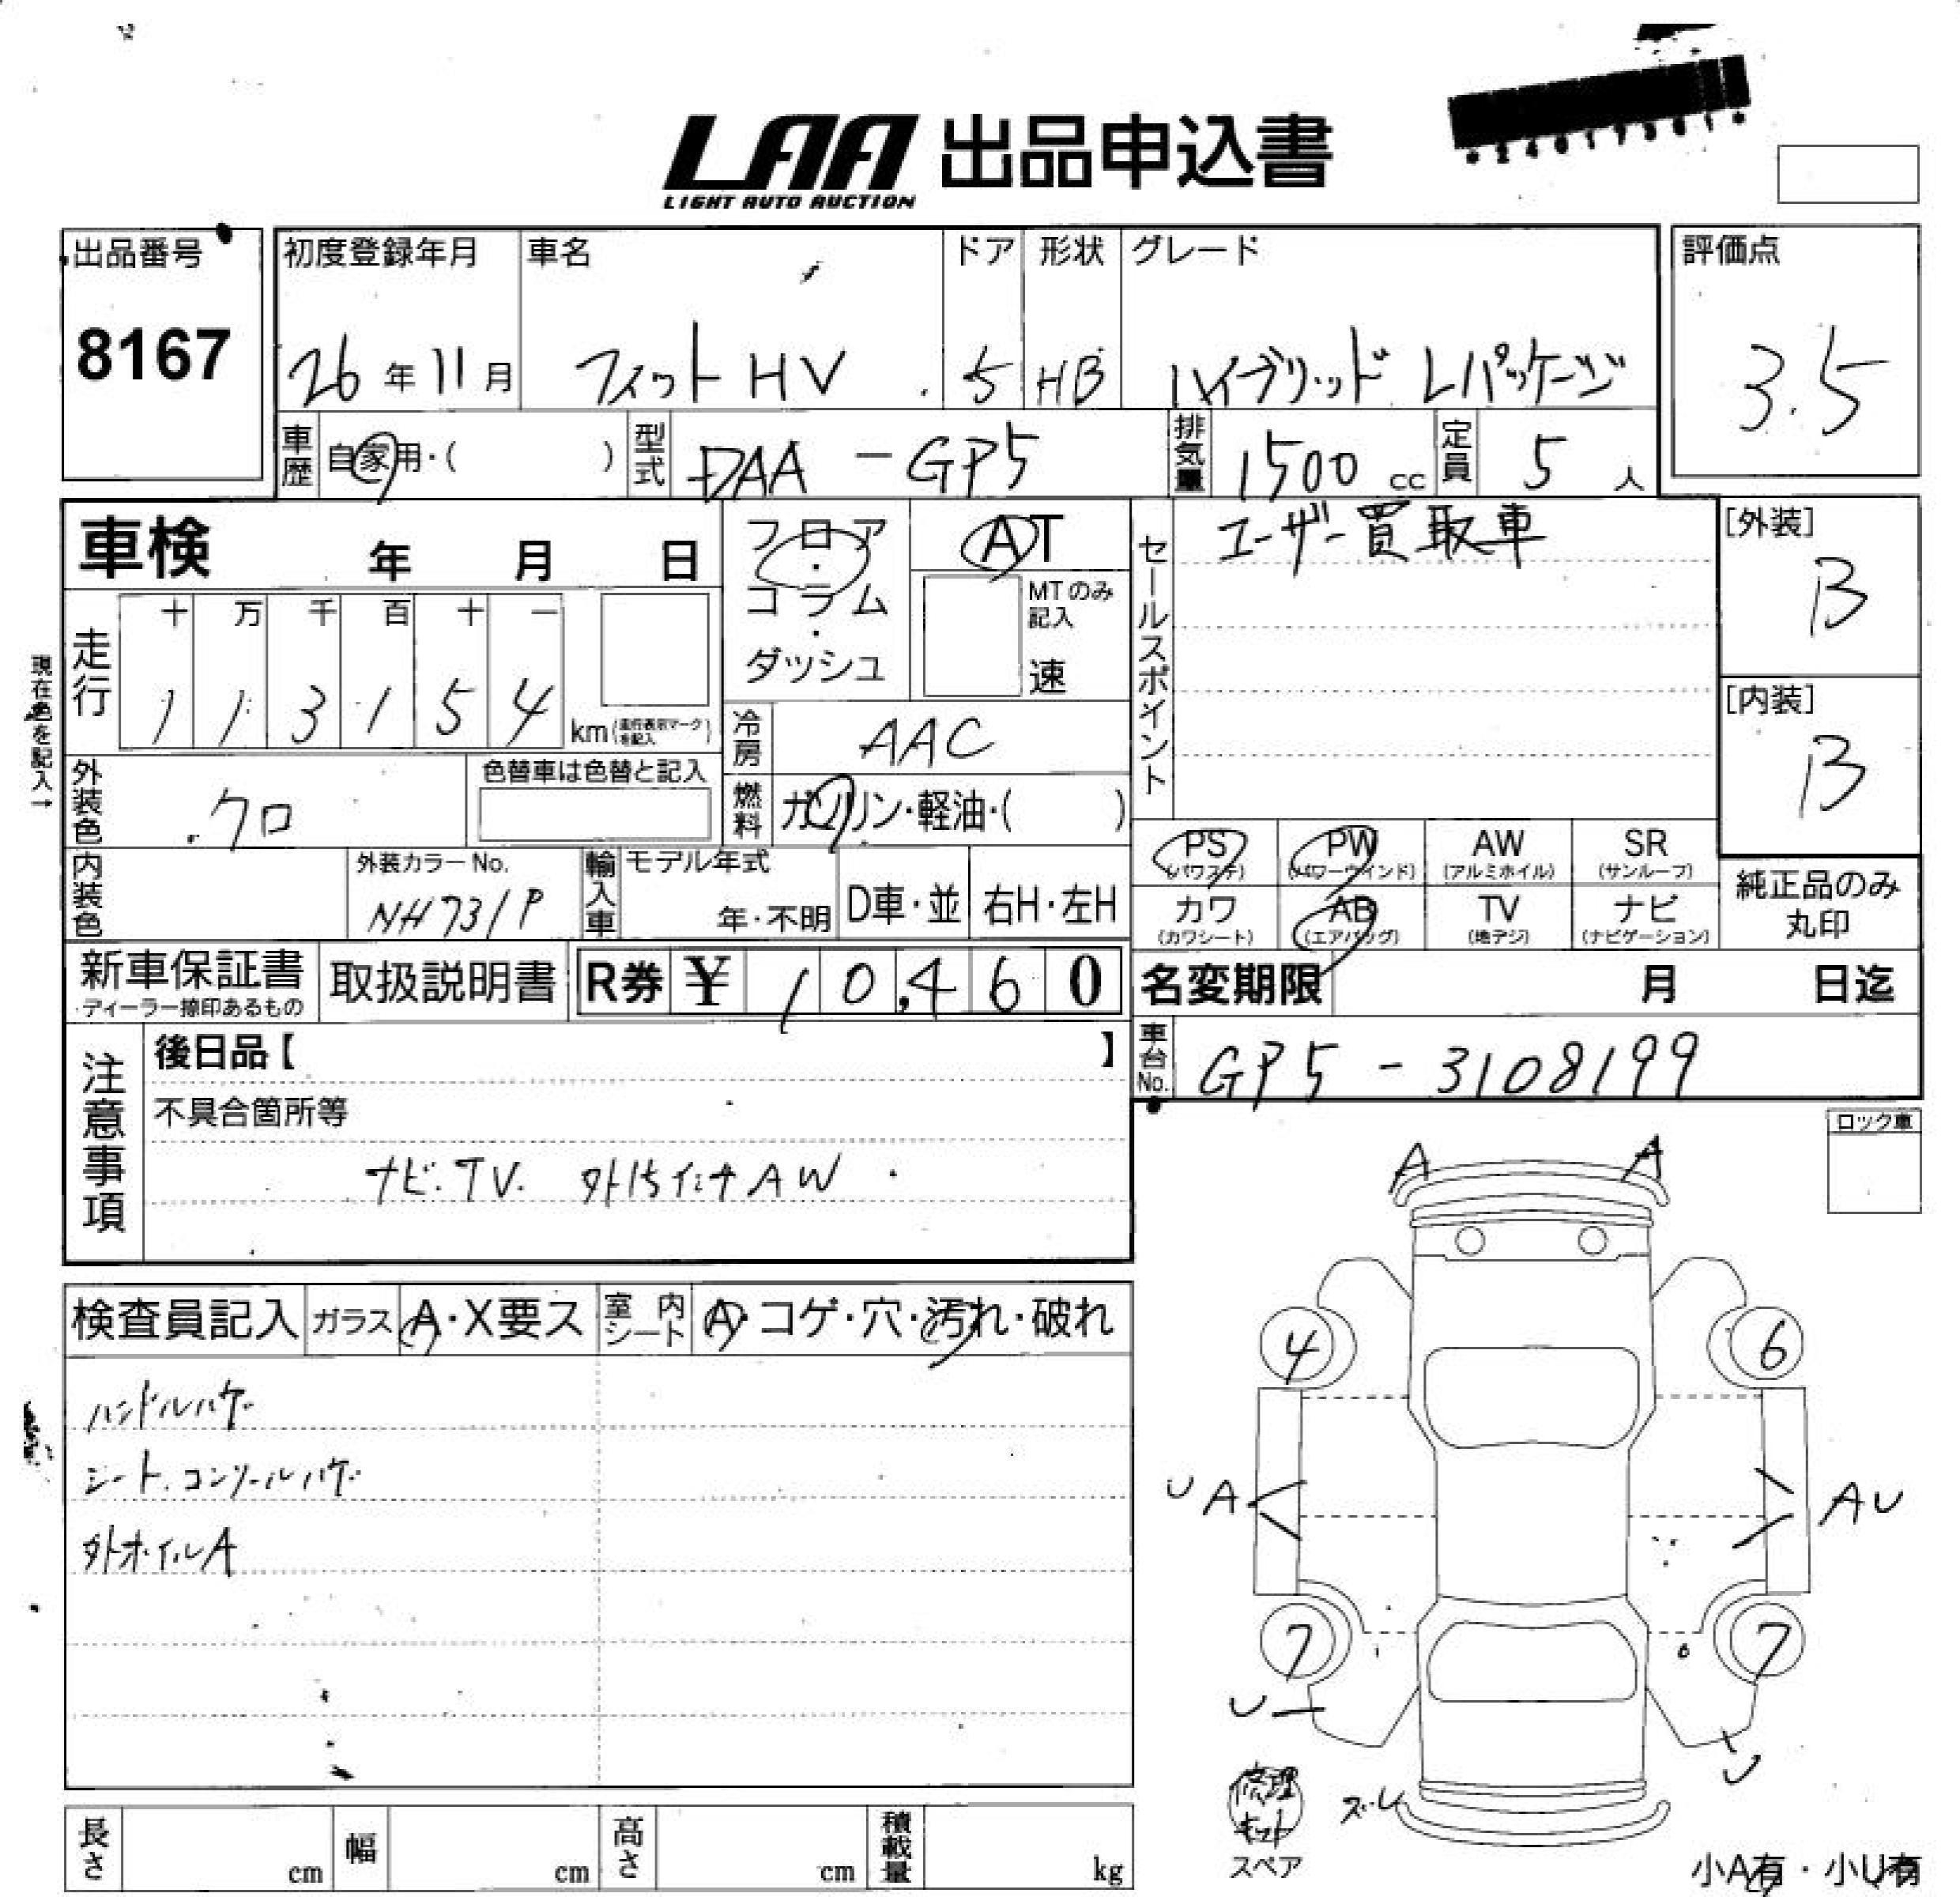 LAA 出品申込書
LIGHT AUTO AUCTION
出品番号
8167
初度登録年月
26年11月
車名
フィットHV
ドア
5
形状
HB
グレード
ハイブリッド Lパッケージ
評価点
3.5
車歴
自家用・( )
型式
DAA-GP5
排気量
1500cc
定員
5人
車検 年 月 日
フロア・コラム・ダッシュ
AT
MTのみ記入
速
セールスポイント
ユーザー買取車
[外装]
B
[内装]
B
現在色を記入→
走行
十 万 千 百 十 一
1 1 3 1 5 4
km(走行表示マークを記入)
冷房
AAC
外装色
クロ
色替車は色替と記入
燃料
ガソリン・軽油・( )
内装色
外装カラーNo.
NH731P
輸入車
モデル年式
年・不明
D車・並
右H・左H
PS
(パワステ)
PW
(パワーウィンド)
AW
(アルミホイル)
SR
(サンルーフ)
カワ
(カワシート)
AB
(エアバッグ)
TV
(地デジ)
ナビ
(ナビゲーション)
純正品のみ
丸印
新車保証書
・ディーラー捺印あるもの
取扱説明書
R券 ¥ 10,460
名変期限 月 日迄
車台No.
GP5-3108199
注意事項
後日品【 】
不具合箇所等
ナビ.TV. 外15インチAW
ロック車
検査員記入
ガラス
A・X要ス
室内シート
A・コゲ・穴・汚れ・破れ
ハンドルハゲ
シート.コンソールハゲ
外ホイルA
A A
4 6
UA AU
7 7
U U
修理キット
スペア
ズレ
小A有・小U有
長さ cm
幅 cm
高さ cm
積載量 kg